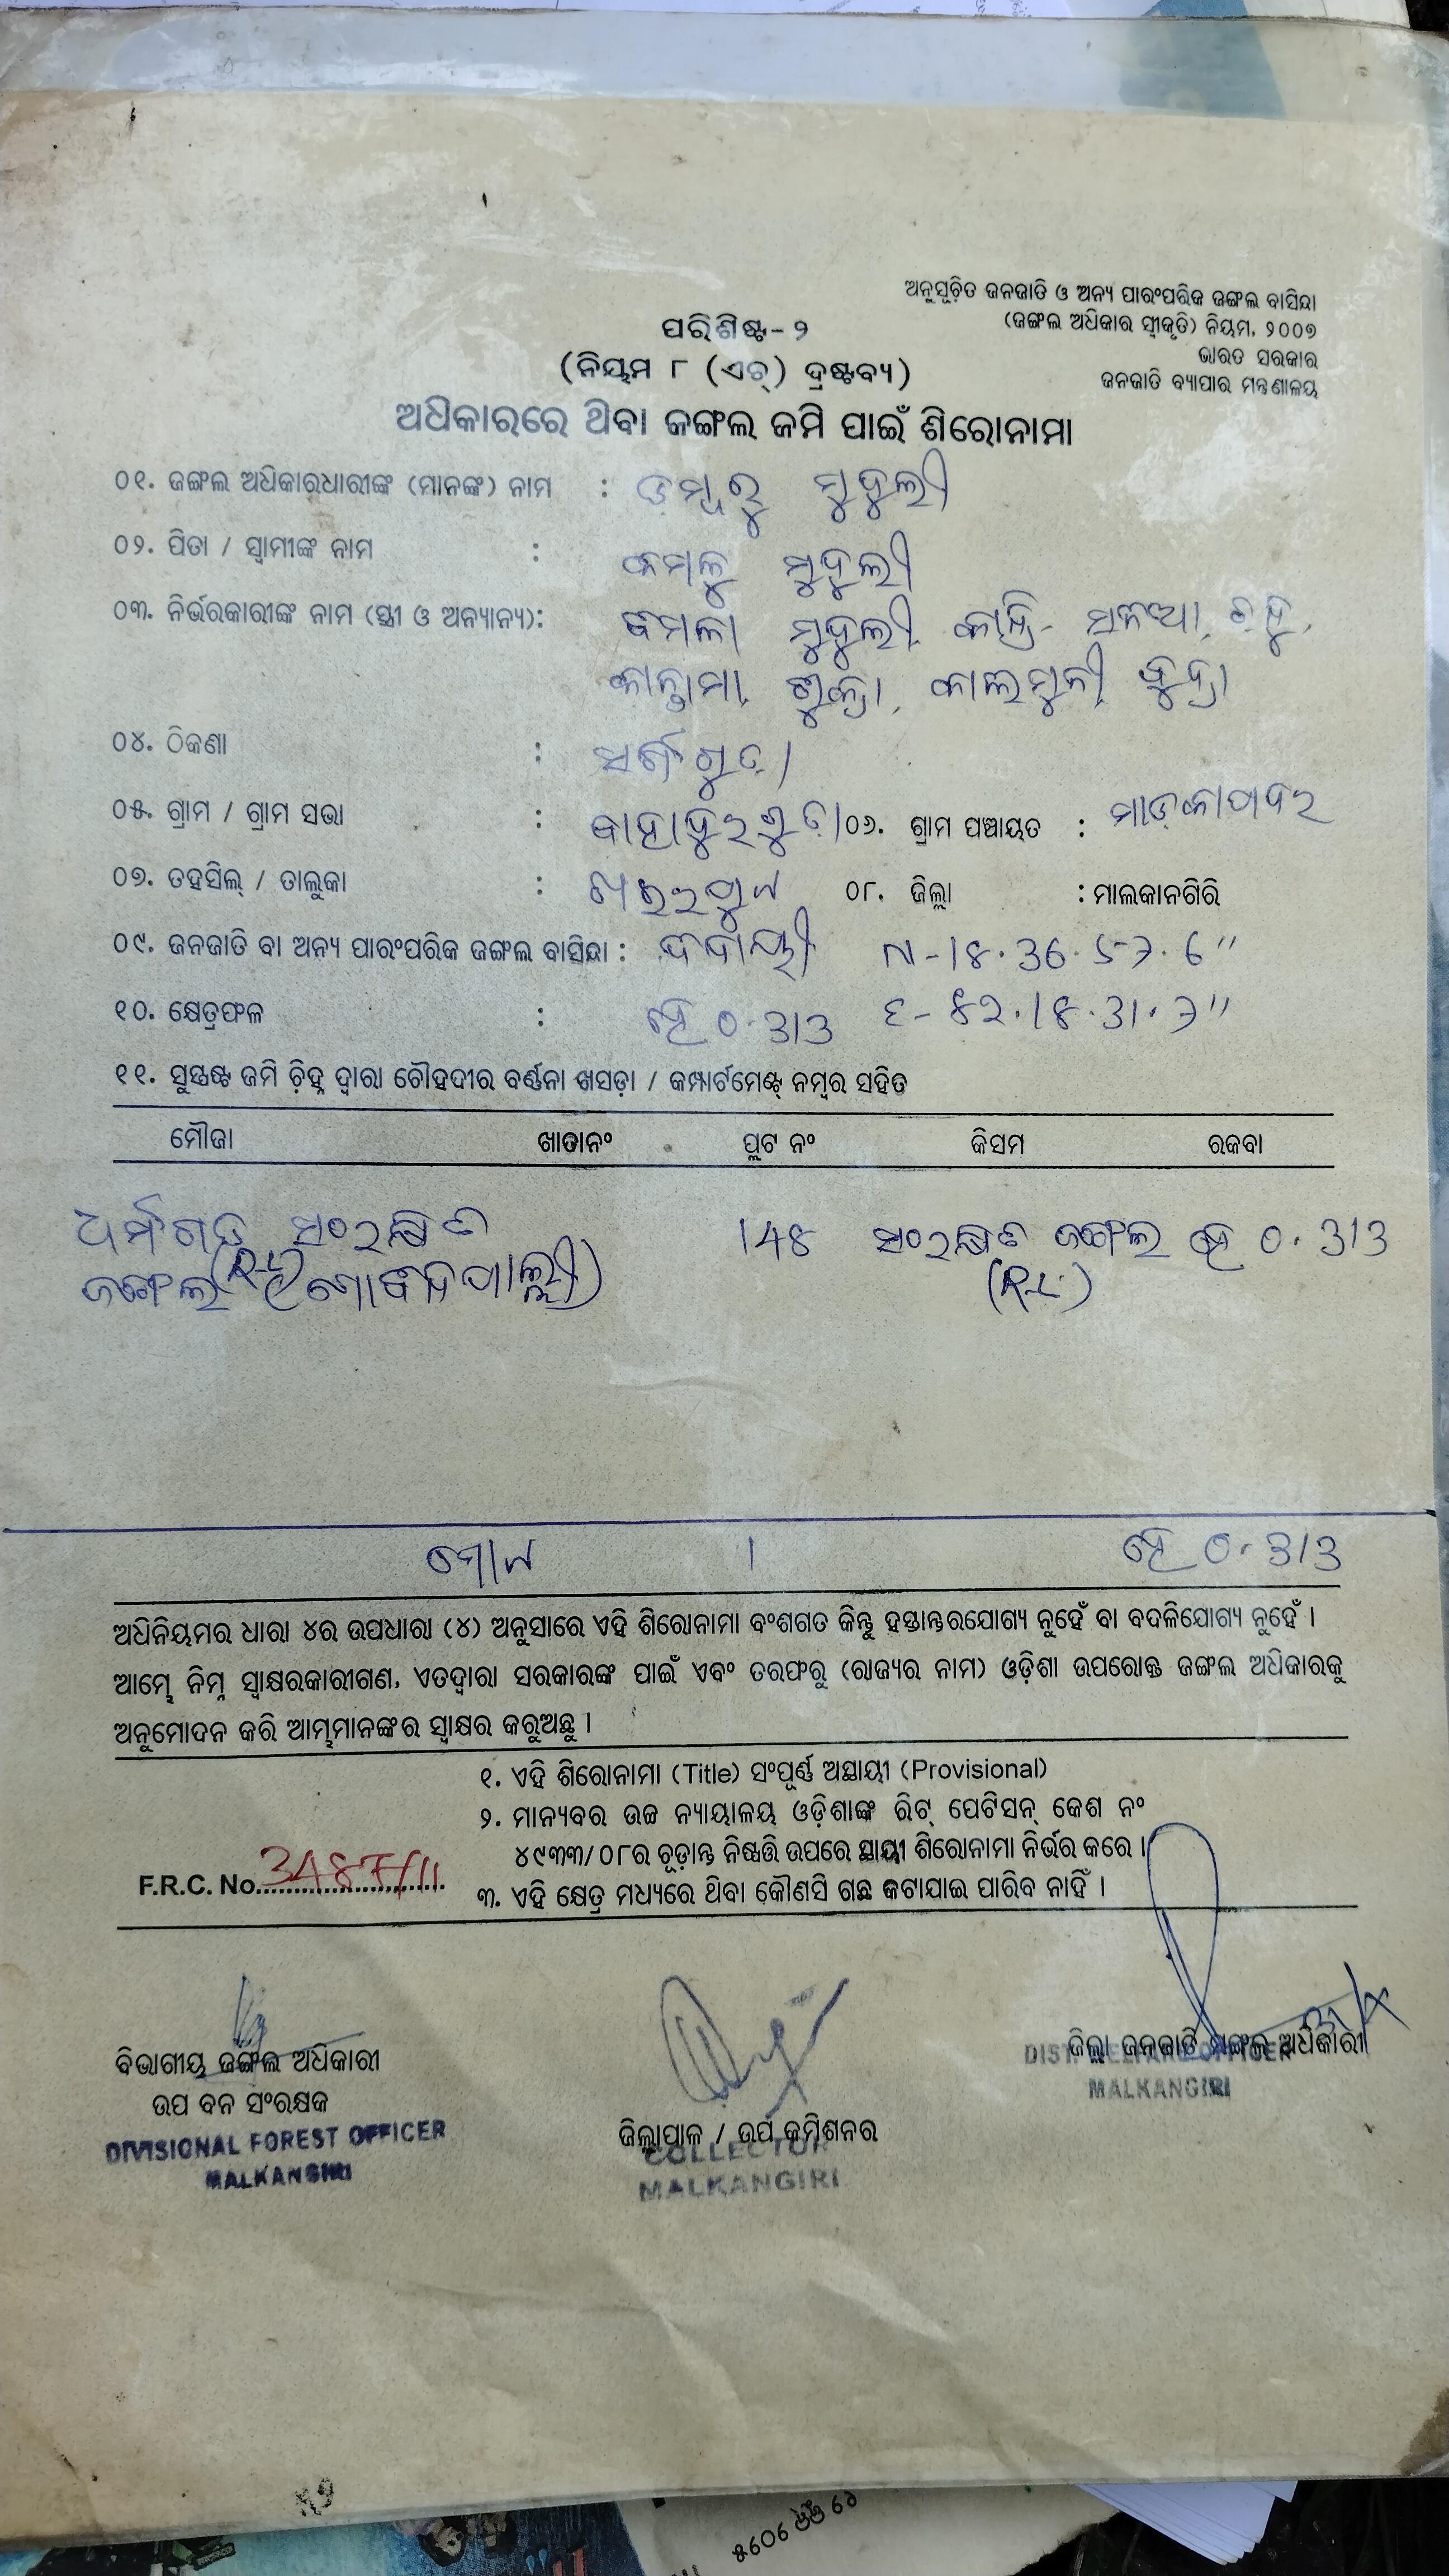 ଅନୁସୂଚିତ ଜନଜାତି ଓ ଅନ୍ୟ ପାରଂପରିକ ଜଙ୍ଗଲ ବାସିନ୍ଦା
(ଜଙ୍ଗଲ ଅଧିକାର ସ୍ୱୀକୃତି) ନିୟମ, ୨୦୦୭
ଭାରତ ସରକାର
ଜନଜାତି ବ୍ୟାପାର ମନ୍ତ୍ରଣାଳୟ
ପରିଶିଷ୍ଟ-୨
(ନିୟମ ୮ (ଏଚ୍) ଦ୍ରଷ୍ଟବ୍ୟ)
ଅଧିକାରରେ ଥିବା ଜଙ୍ଗଲ ଜମି ପାଇଁ ଶିରୋନାମା
୦୧. ଜଙ୍ଗଲ ଅଧିକାରଧାରୀଙ୍କ (ମାନଙ୍କ) ନାମ : ଡମ୍ବରୁ ମୁଦୁଲୀ
୦୨. ପିତା / ସ୍ୱାମୀଙ୍କ ନାମ : କମଳୁ ମୁଦୁଲୀ
୦୩. ନିର୍ଭରକାରୀଙ୍କ ନାମ (ସ୍ତ୍ରୀ ଓ ଅନ୍ୟାନ୍ୟ): ମୁଦୁଲୀ
୦୪. ଠିକଣା :
୦୫. ଗ୍ରାମ / ଗ୍ରାମ ସଭା : ବାହାଦୁରଗୁଡ଼ା ୦୬. ଗ୍ରାମ ପଞ୍ଚାୟତ : ମାଡ଼କାପଦର
୦୭. ତହସିଲ୍ / ତାଲୁକା : ଖଇରପୁଟ ୦୮. ଜିଲ୍ଲା : ମାଲକାନଗିରି
୦୯. ଜନଜାତି ବା ଅନ୍ୟ ପାରଂପରିକ ଜଙ୍ଗଲ ବାସିନ୍ଦା : ଦିଦାୟୀ
୧୦. କ୍ଷେତ୍ରଫଳ : ହେ 0.313
୧୧. ସୁସ୍ପଷ୍ଟ ଜମି ଚିହ୍ନ ଦ୍ୱାରା ଚୌହଦୀର ବର୍ଣ୍ଣନା ଖସଡ଼ା / କମ୍ପାର୍ଟମେଣ୍ଟ୍ ନମ୍ବର ସହିତ
ମୌଜା ଖାତାନଂ ପ୍ଲଟ ନଂ କିସମ ରକବା
ଧର୍ମଗଡ଼ ସଂରକ୍ଷିତ 148 ସଂରକ୍ଷିତ ଜଙ୍ଗଲ ହେ 0.313
ଜଙ୍ଗଲ
ମୋଟ 1 ହେ 0.313
ଅଧିନିୟମର ଧାରା ୪ର ଉପଧାରା (୪) ଅନୁସାରେ ଏହି ଶିରୋନାମା ବଂଶଗତ କିନ୍ତୁ ହସ୍ତାନ୍ତରଯୋଗ୍ୟ ନୁହେଁ ବା ବଦଳିଯୋଗ୍ୟ ନୁହେଁ ।
ଆମ୍ଭେ ନିମ୍ନ ସ୍ୱାକ୍ଷରକାରୀଗଣ, ଏତଦ୍ୱାରା ସରକାରଙ୍କ ପାଇଁ ଏବଂ ତରଫରୁ (ରାଜ୍ୟର ନାମ) ଓଡ଼ିଶା ଉପରୋକ୍ତ ଜଙ୍ଗଲ ଅଧିକାରକୁ
ଅନୁମୋଦନ କରି ଆମ୍ଭମାନଙ୍କର ସ୍ୱାକ୍ଷର କରୁଅଛୁ ।
୧. ଏହି ଶିରୋନାମା (Title) ସଂପୂର୍ଣ୍ଣ ଅସ୍ଥାୟୀ (Provisional)
୨. ମାନ୍ୟବର ଉଚ୍ଚ ନ୍ୟାୟାଳୟ ଓଡ଼ିଶାଙ୍କ ରିଟ୍ ପେଟିସନ୍ କେଶ ନଂ
୪୯୩୩/୦୮ର ଚୂଡ଼ାନ୍ତ ନିଷ୍ପତ୍ତି ଉପରେ ସ୍ଥାୟୀ ଶିରୋନାମା ନିର୍ଭର କରେ ।
F.R.C. No.
୩. ଏହି କ୍ଷେତ୍ର ମଧ୍ୟରେ ଥିବା କୌଣସି ଗଛ କଟାଯାଇ ପାରିବ ନାହିଁ ।
ବିଭାଗୀୟ ଜଙ୍ଗଲ ଅଧିକାରୀ
ଉପ ବନ ସଂରକ୍ଷକ
DIVISIONAL FOREST OFFICER
MALKANGIRI
ଜିଲ୍ଲାପାଳ / ଉପ କମିଶନର
COLLECTOR
MALKANGIRI
ଜିଲ୍ଲା ଜନଜାତି ମଙ୍ଗଳ ଅଧିକାରୀ
DIST. WELFARE OFFICER
MALKANGIRI